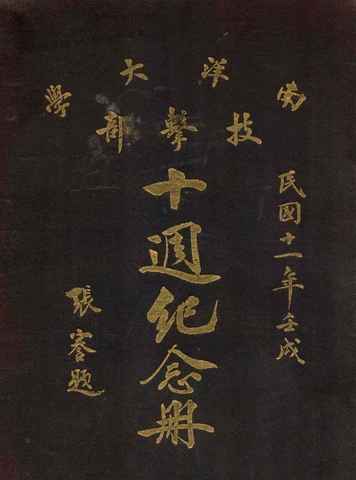 南洋大學
技擊部
民國十一年壬戌
十週紀念册
張謇題